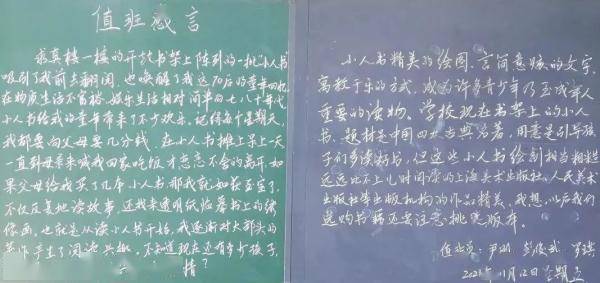 值班感言
求真楼一楼的开放书架上陈列的一批小人书
吸引了我前去翻阅,也唤醒了我这70后的童年回忆
在物质生活不富裕、娱乐生活相对简单的七八十年代,
小人书给我的童年带来了不少欢乐。记得每个星期天,
我都要向父母要几分钱,在小人书摊上呆上一天
一直到母亲来喊我回家吃饭才恋恋不舍的离开。如
果父母给我买了几本小人书,那我就如获至宝了。
不仅反复地读故事,还找来透明纸临摹书上的绣
像画,也就是从读小人书开始,我逐渐对大部头的
著作产生了阅读兴趣。不知道现在还有多少孩子,
情?
小人书精美的绘图、言简意赅的文字,
寓教于乐的方式,成为许多青少年乃至成年人
重要的读物。学校现在书架上的小人
书,题材是中国四大古典名著,用意是引导孩
子们多读好书,但这些小人书绘制相当粗糙
远远比不上儿时阅读的上海美术出版社、人民美术
出版社等出版机构的作品精美,我想,以后我们
选购书籍还要注意挑选版本。
值班员:尹 彭俊武 罗琪
2021年11月12日 星期五